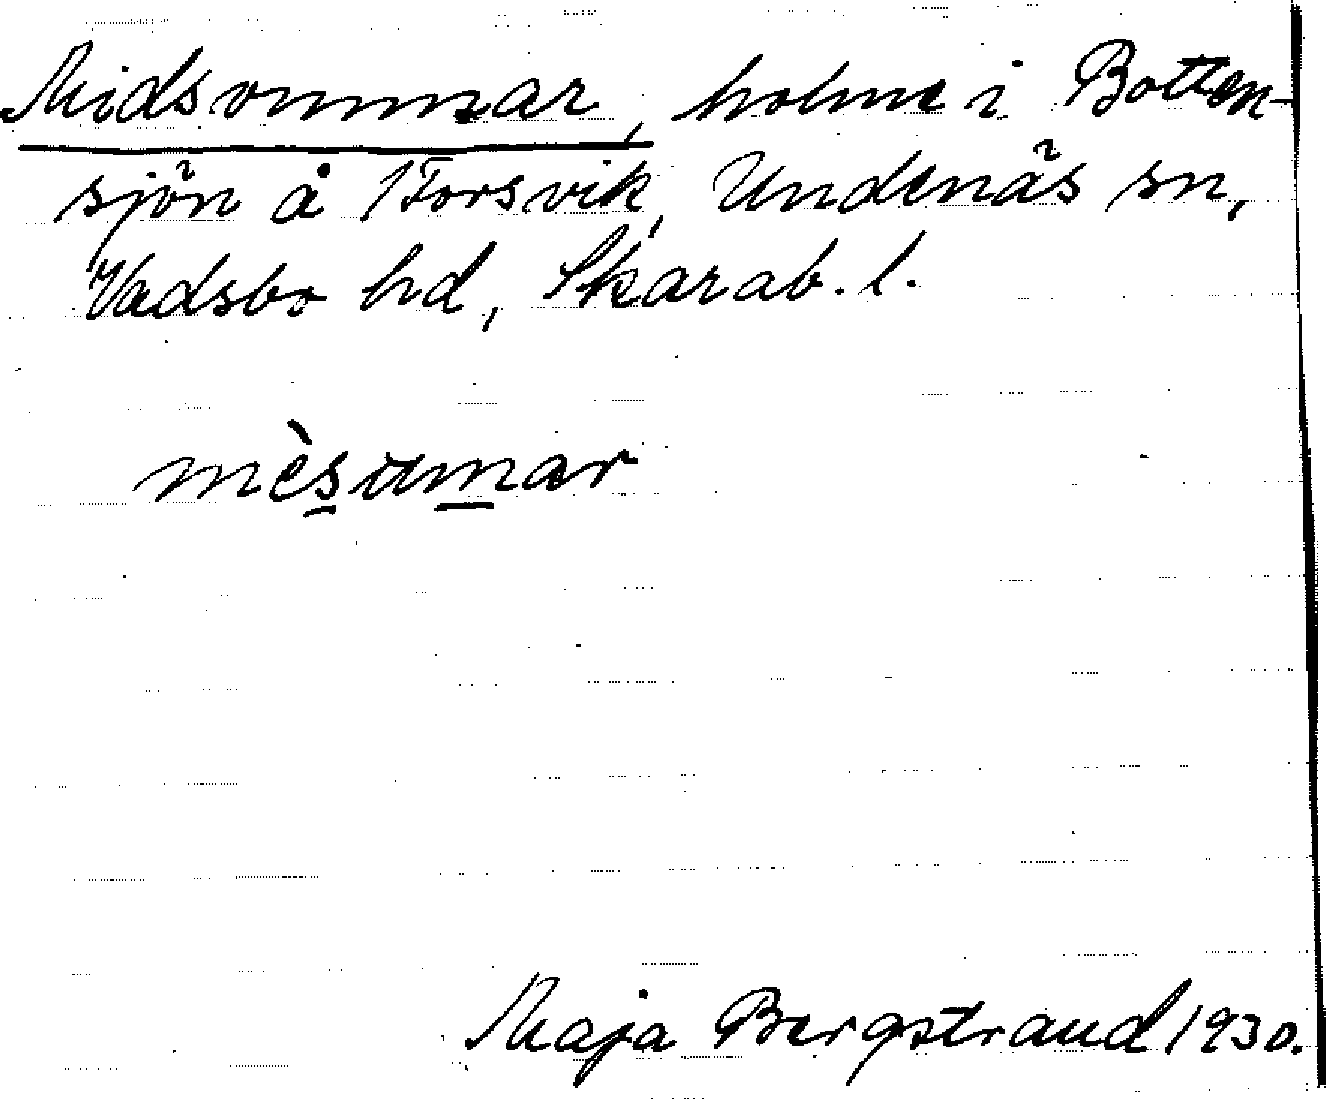 Midsommar, holme i Botten-
sjön å 1 Forsvik, Undenäs sn,
Vadsbo hd, Skarab. l.
mèsumar
Maja Bergstrand 1930.